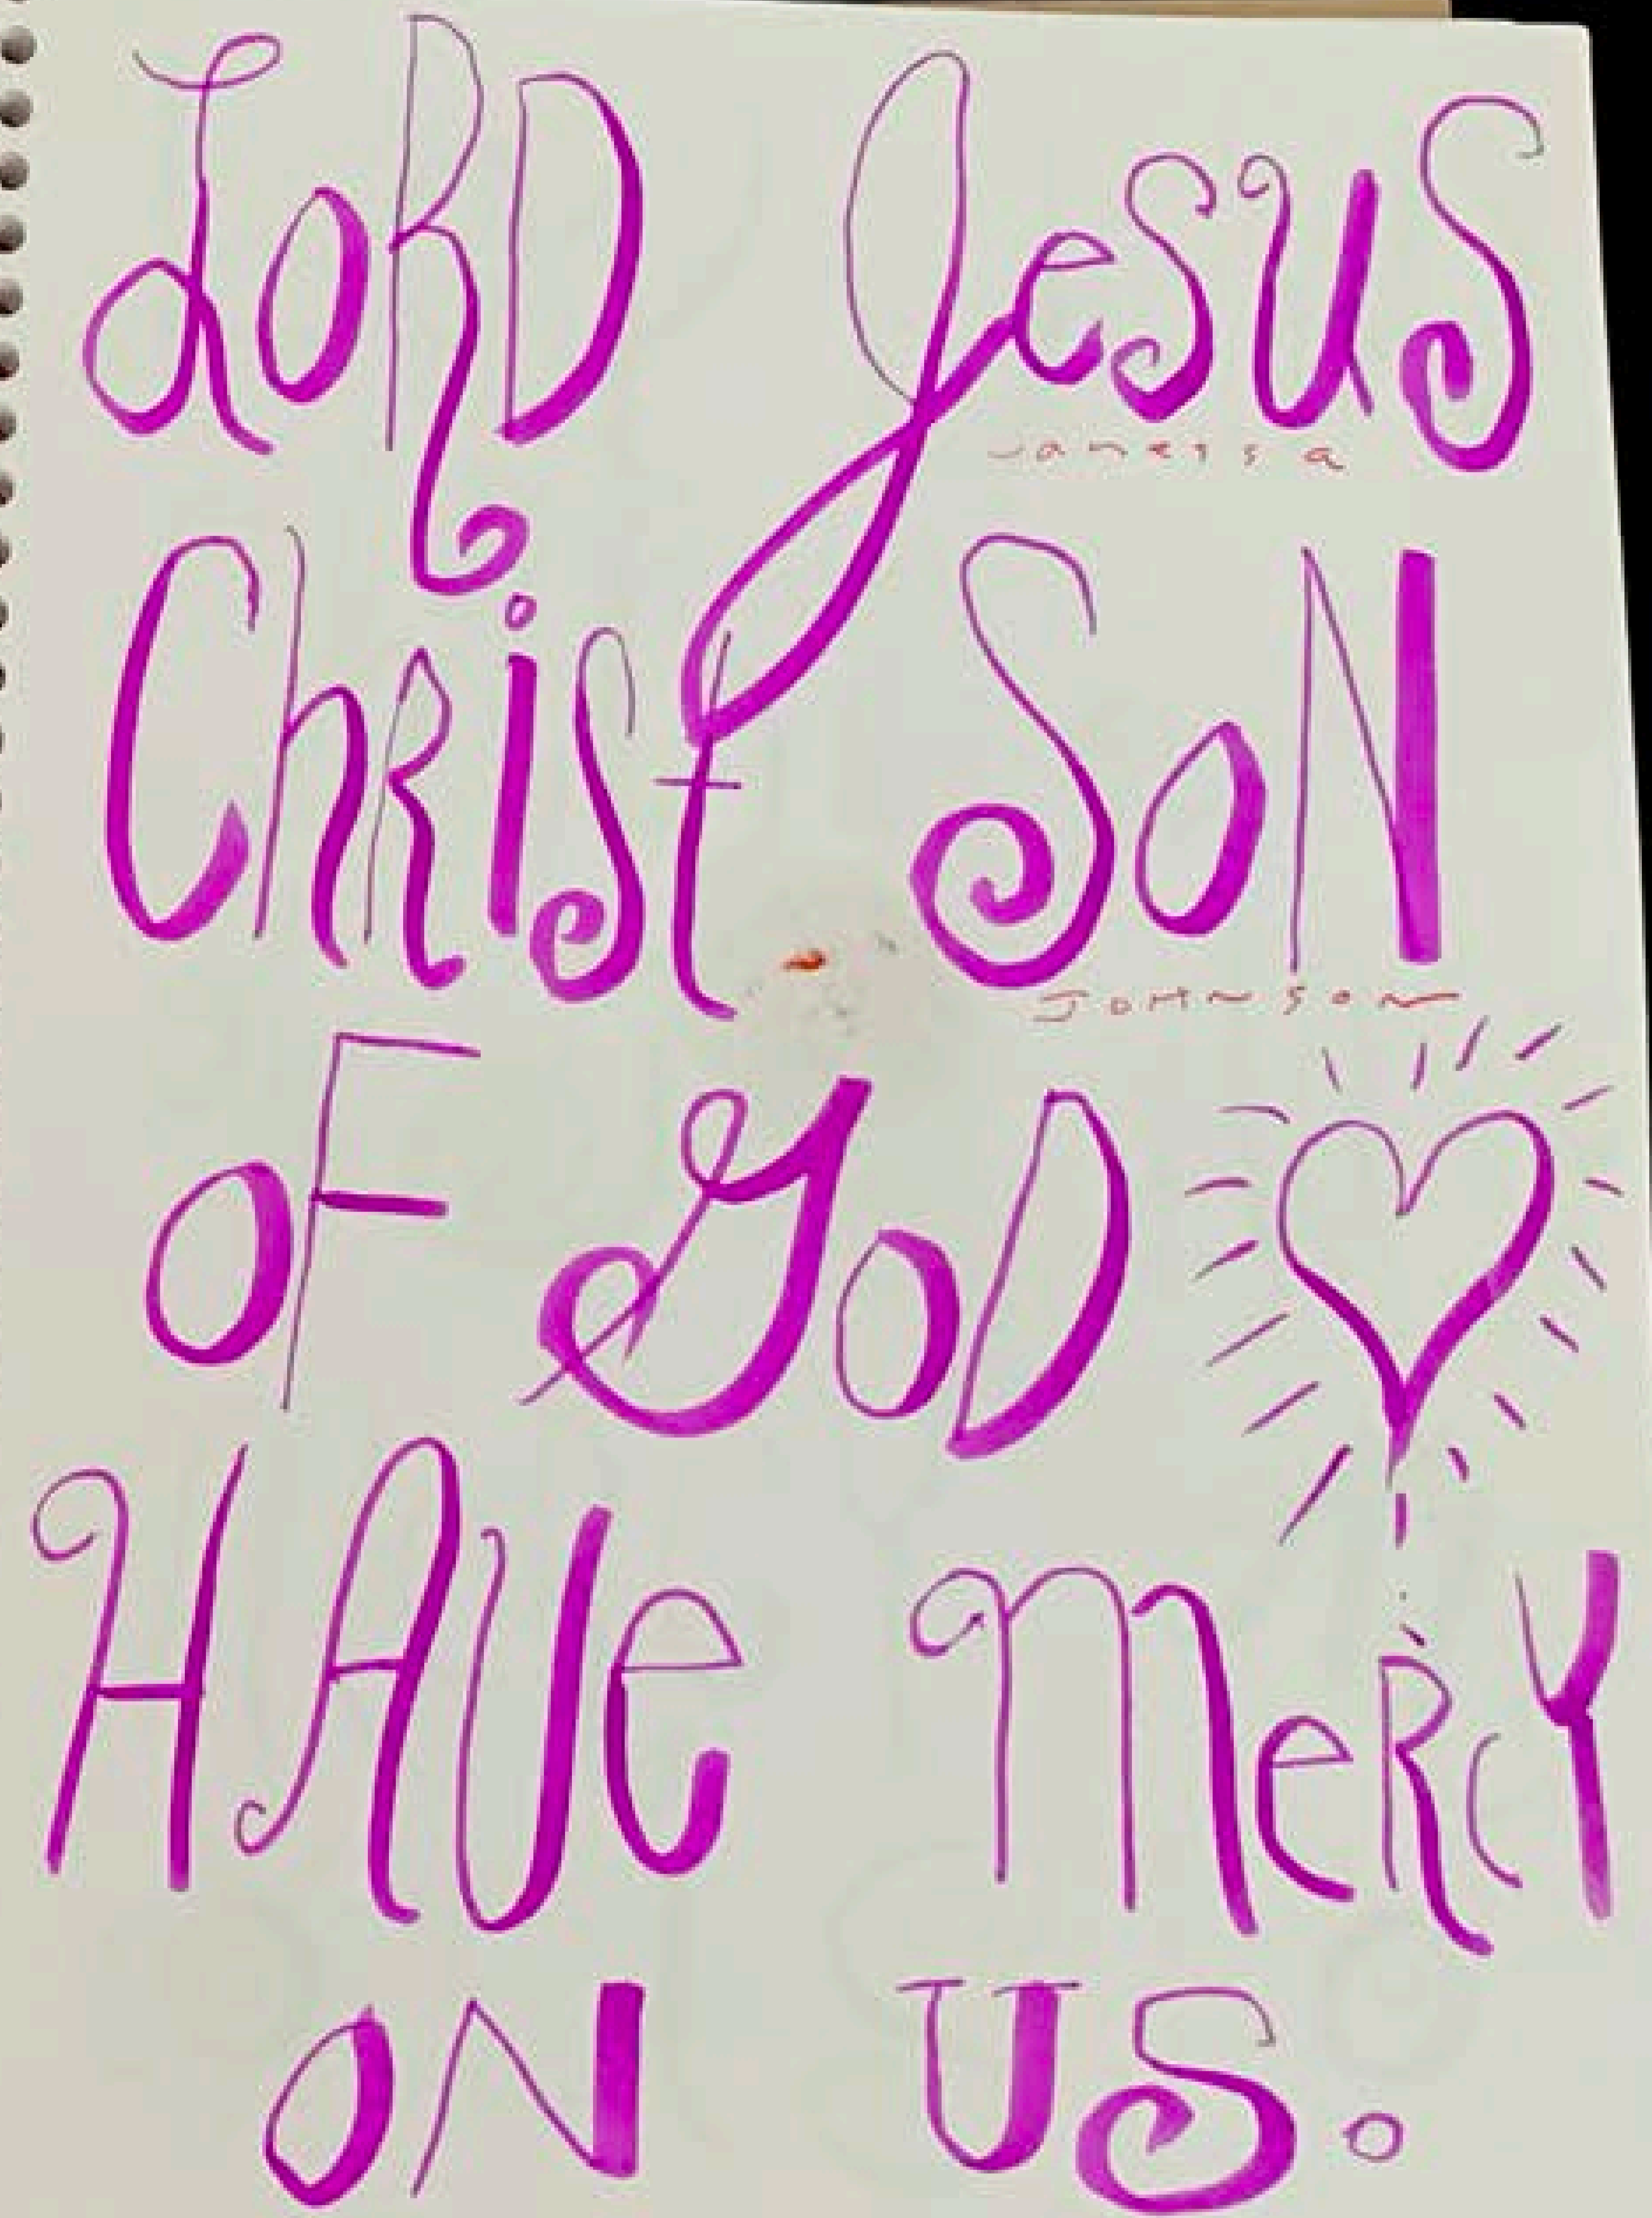 LoRD JesuS
vanessa
ChRist SoN
JOHNSON
oF GoD
HAVe MeRcY
ON US.